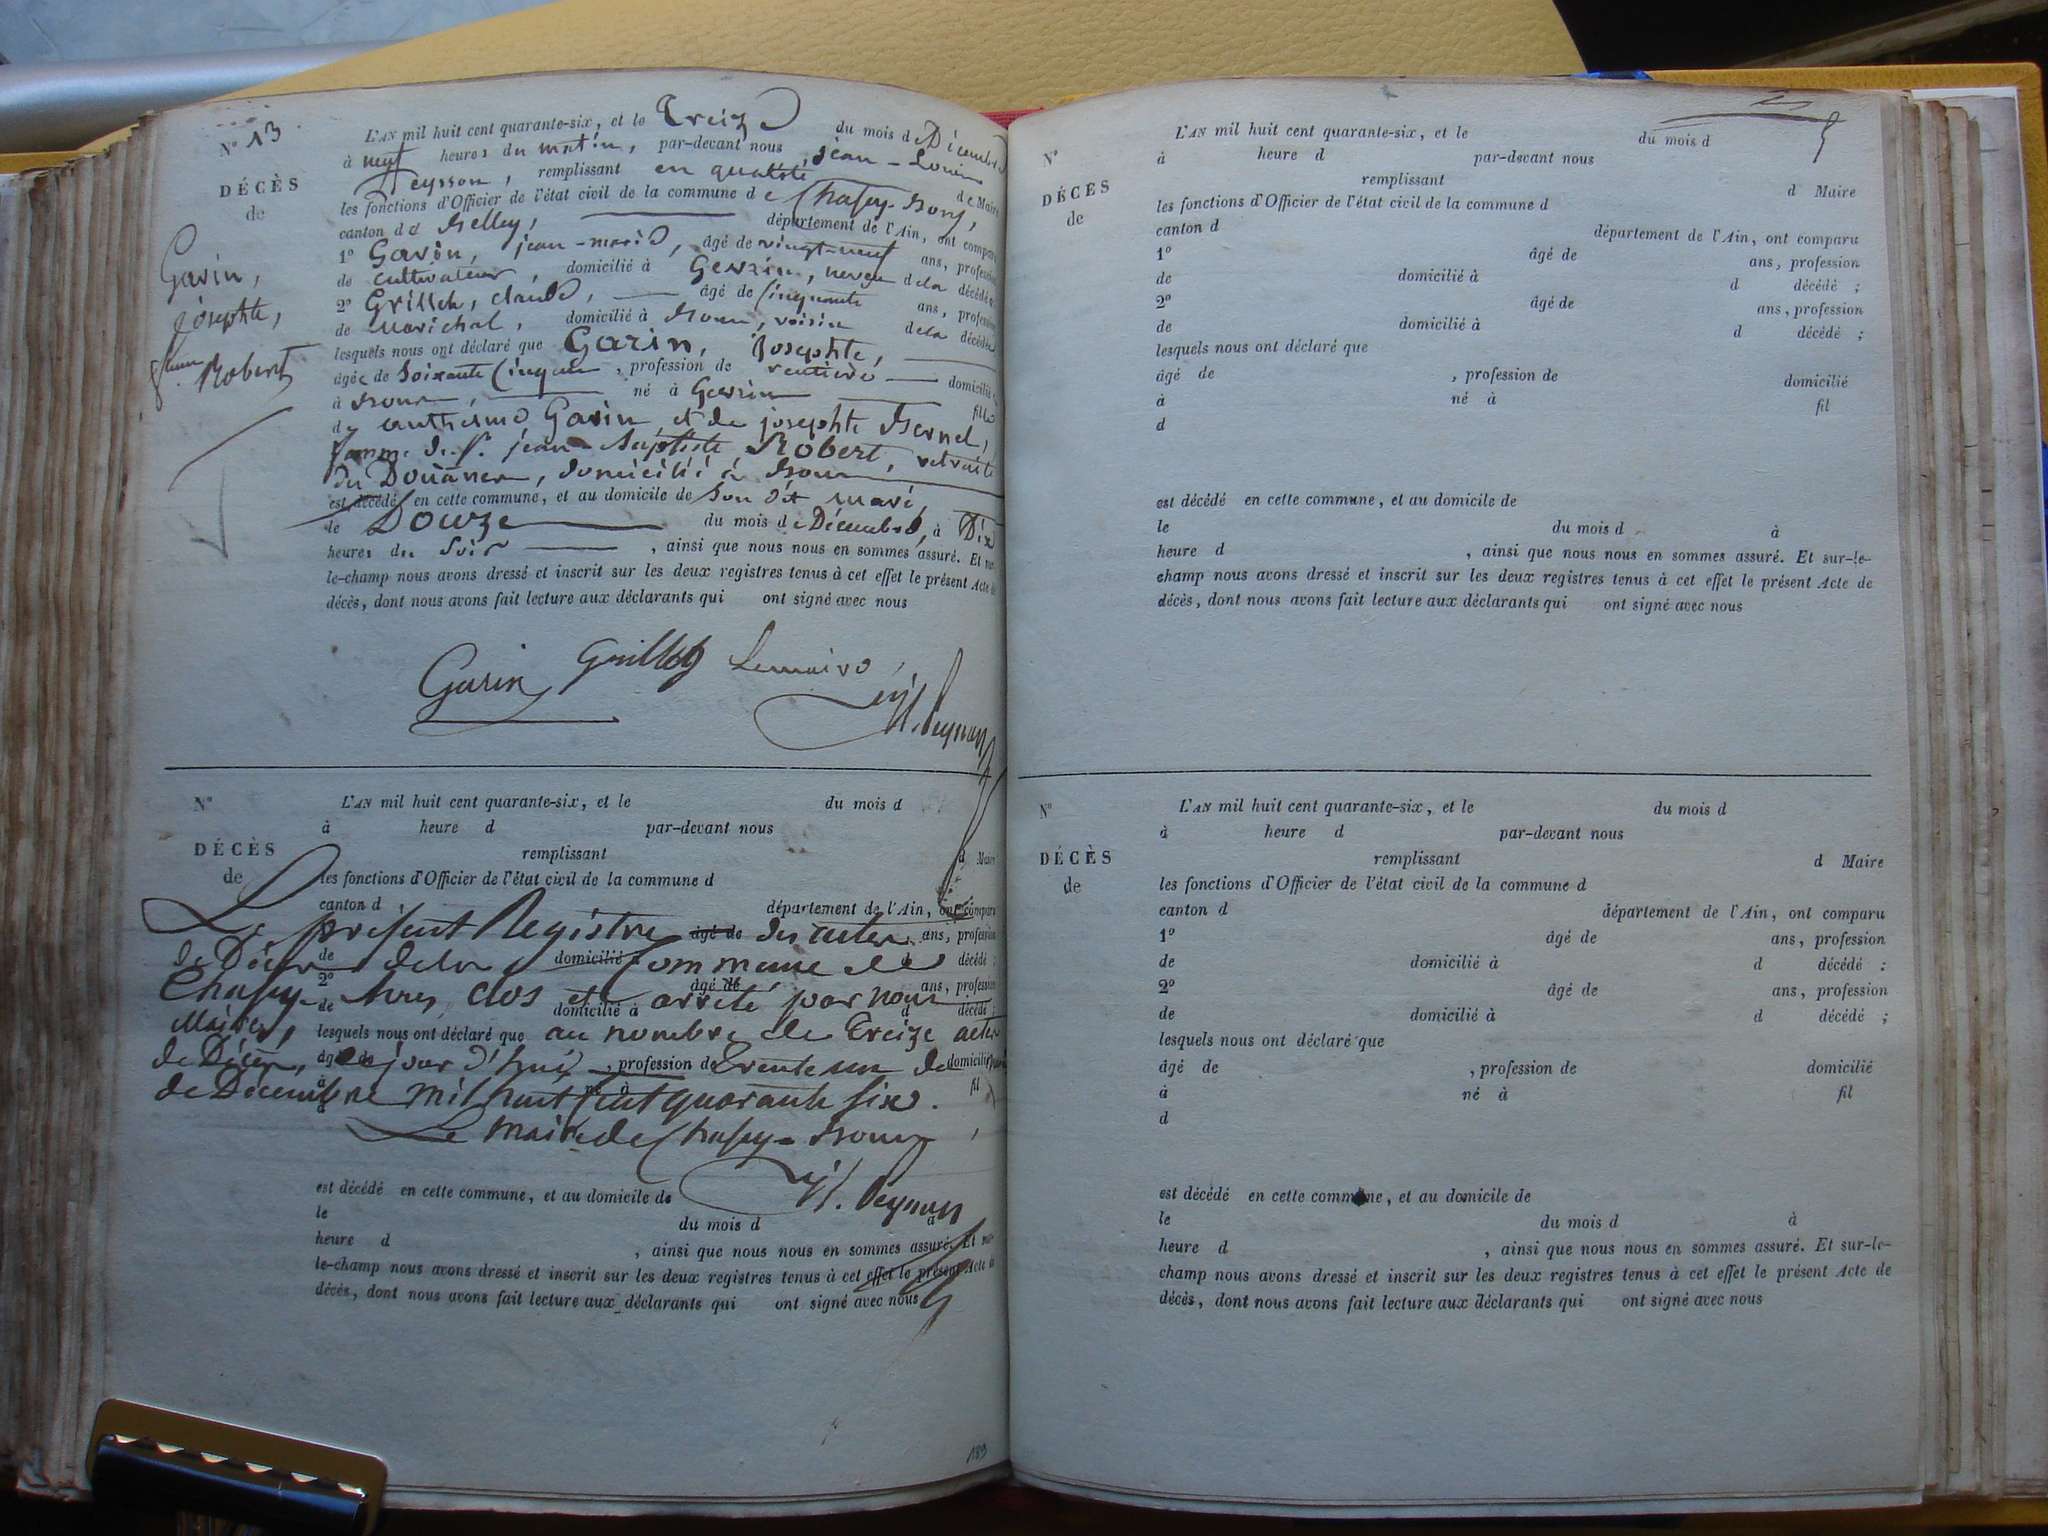 N° 13
DÉCÈS
de
Garin,
josephte,
femme
Robert
L'AN mil huit cent quarante-six, et le Treize du mois de Décembre
à neuf heures du matin, par-devant nous jean-Louis
Peysson, remplissant en qualité de Maire
les fonctions d'Officier de l'état civil de la commune de
canton de département de l'Ain, ont comparu
1° Garin, jean-marie, âgé de vingt-neuf ans, profession
de cultivateur, domicilié à neveu de la décédée
2° claude, âgé de cinquante ans, profession
de marechal, domicilié à voisin de la décédée
lesquels nous ont déclaré que Garin, Josephte,
âgée de soixante cinq ans, profession de rentiere domicilié
à né à fille
d' anthelme Garin, et de josephte
femme de Sr. jean-baptiste Robert, retraité
des Douanes, domicilié à
est décédé en cette commune, et au domicile de son dit mari,
le Douze du mois de Décembre, à Dix
heures du soir, ainsi que nous nous en sommes assuré. Et sur-
le-champ nous avons dressé et inscrit sur les deux registres tenus à cet effet le présent Acte de
décès, dont nous avons fait lecture aux déclarants qui ont signé avec nous
Garin Lemaire,
N°
DÉCÈS
de
L'AN mil huit cent quarante-six, et le du mois d
à heure d par-devant nous
remplissant d Maire
les fonctions d'Officier de l'état civil de la commune d
canton d département de l'Ain, ont comparu
Le présent Registre âgé de des actes ans, profession
de Décès de la domicilié Commune de décédé ;
2° âgé de ans, profession
clos et arrêté par nous
de domicilié à d décédé ;
Maire, lesquels nous ont déclaré que au nombre de Treize actes
de Décès, âgé de ce jour d'hui, profession de trente un domicilié
à né à fil
de Décembre mil huit cent quarante six.
Le Maire de
est décédé en cette commune, et au domicile de
le du mois d à
heure d , ainsi que nous nous en sommes assuré. Et sur-
le-champ nous avons dressé et inscrit sur les deux registres tenus à cet effet le présent Acte de
décès, dont nous avons fait lecture aux déclarants qui ont signé avec nous
189
N°
DÉCÈS
de
L'AN mil huit cent quarante-six, et le du mois d
à heure d par-devant nous
remplissant d Maire
les fonctions d'Officier de l'état civil de la commune d
canton d département de l'Ain, ont comparu
1° âgé de ans, profession
de domicilié à d décédé ;
2° âgé de ans, profession
de domicilié à d décédé ;
lesquels nous ont déclaré que
âgé de , profession de domicilié
à né à fil
d
est décédé en cette commune, et au domicile de
le du mois d à
heure d , ainsi que nous nous en sommes assuré. Et sur-le-
champ nous avons dressé et inscrit sur les deux registres tenus à cet effet le présent Acte de
décès, dont nous avons fait lecture aux déclarants qui ont signé avec nous
N°
DÉCÈS
de
L'AN mil huit cent quarante-six, et le du mois d
à heure d par-devant nous
remplissant d Maire
les fonctions d'Officier de l'état civil de la commune d
canton d département de l'Ain, ont comparu
1° âgé de ans, profession
de domicilié à d décédé :
2° âgé de ans, profession
de domicilié à d décédé ;
lesquels nous ont déclaré que
âgé de , profession de domicilié
à né à fil
d
est décédé en cette commune, et au domicile de
le du mois d à
heure d , ainsi que nous nous en sommes assuré. Et sur-le-
champ nous avons dressé et inscrit sur les deux registres tenus à cet effet le présent Acte de
décès, dont nous avons fait lecture aux déclarants qui ont signé avec nous